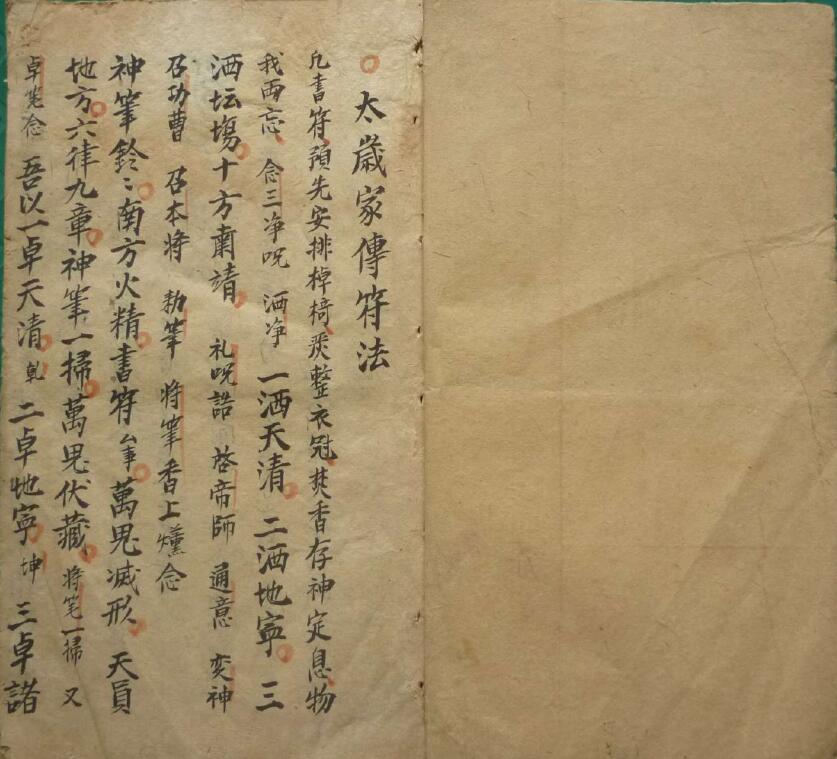 太歲家傳符法
凡書符預先安排棹椅整衣冠焚香存神定息物
我両忘 念三净呪 洒净 一洒天清 二洒地寧 三
洒坛塲十方肅靖 礼呪誥 啓帝師 通意 变神
召功曹 召本将 勅筆 将筆香上燻念
神筆鈴〻南方火精書符 萬鬼滅形 天員
地方六律九章神筆一掃萬鬼伏藏 将笔一掃 又
卓笔念 吾以一卓天清 乹 二卓地寧 坤 三卓諸